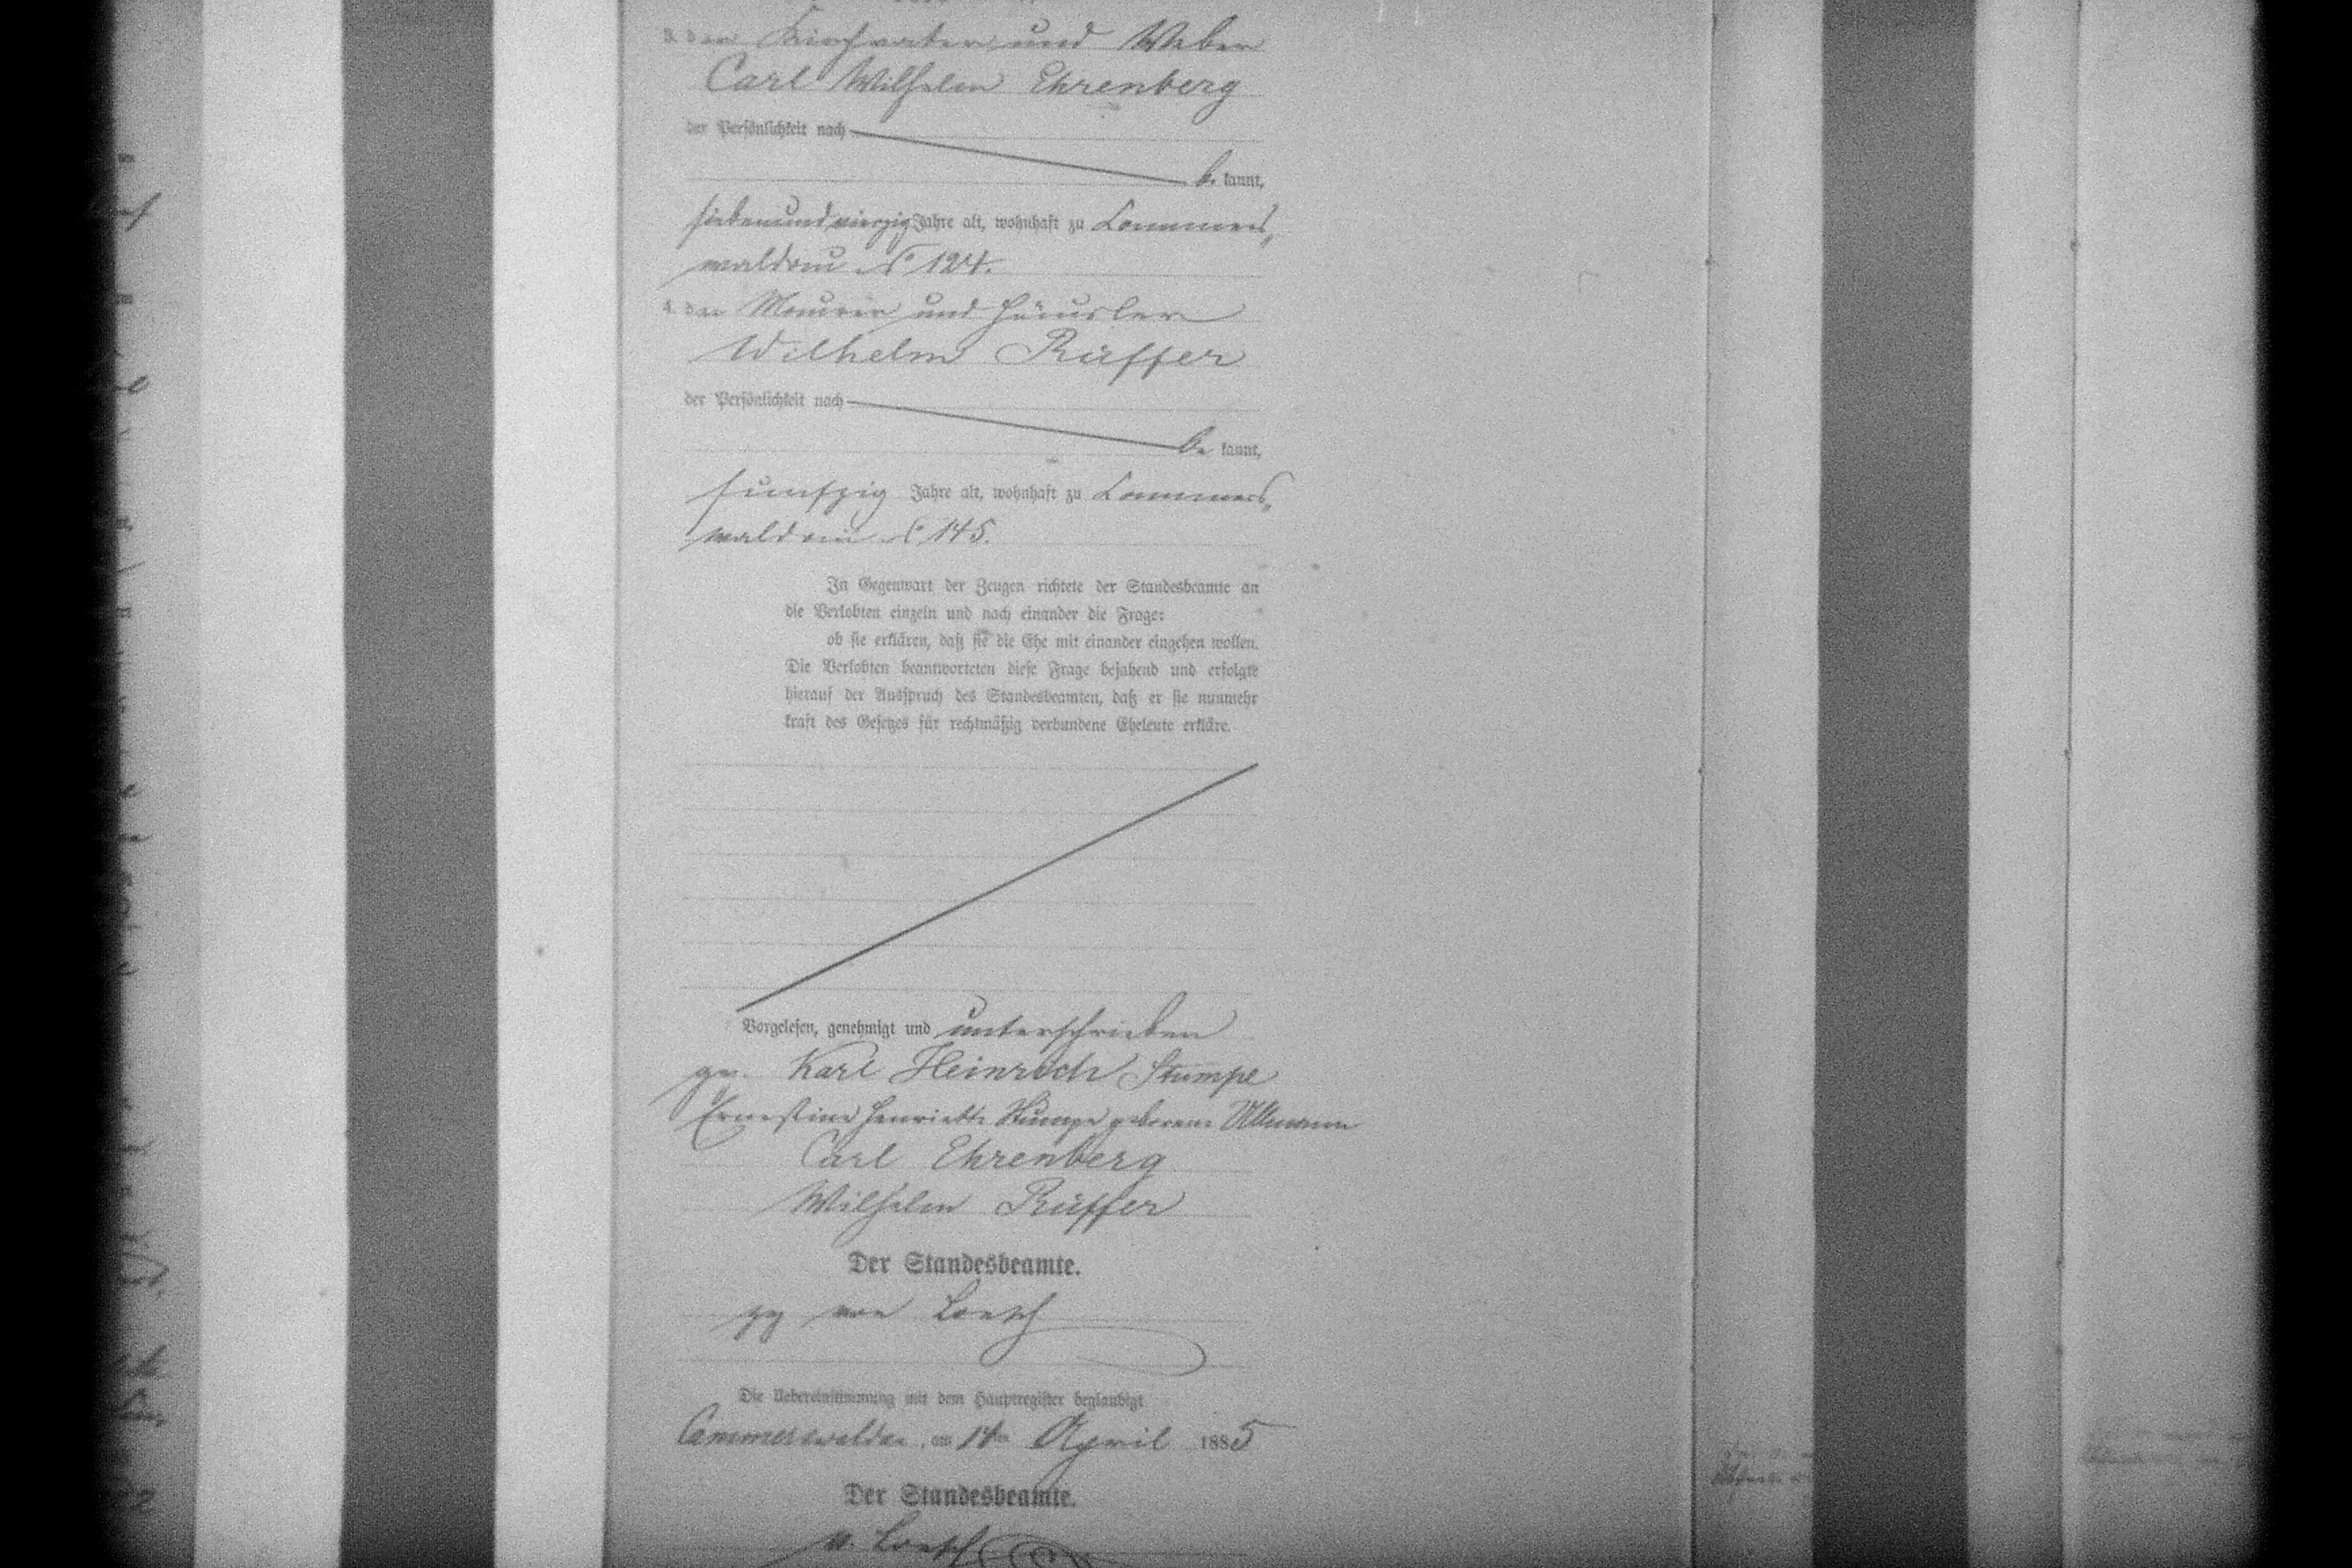 3. der Kirchvater und Weber
Carl Wilhelm Ehrenberg
der Persönlichkeit nach
be kannt,
siebenundvierzig Jahre alt, wohnhaft zu Cammers„
waldau No 124.
4. der Maurer und Häusler
Wilhelm Rüffer
der Persönlichkeit nach
be kannt,
funfzig Jahre alt, wohnhaft zu Cammers„
waldau No 145.
In Gegenwart der Zeugen richtete der Standesbeamte an
die Verlobten einzeln und nach einander die Frage:
ob sie erklären, daß sie die Ehe mit einander eingehen wollen.
Die Verlobten beantworteten diese Frage bejahend und erfolgte
hierauf der Ausspruch des Standesbeamten, daß er sie nunmehr
kraft des Gesetzes für rechtmäßig verbundene Eheleute erkläre.
Vorgelesen, genehmigt und unterschrieben
gez. Karl Heinrich Stumpe
Ernestine Henriette Stumpe geborene Ullmann
Carl Ehrenberg
Wilhelm Rüffer
Der Standesbeamte.
gez von Loesch
Die Uebereinstimmung mit dem Hauptregister beglaubigt
Cammerswaldau, am 14ten April 1885
Der Standesbeamte.
v. Loesch